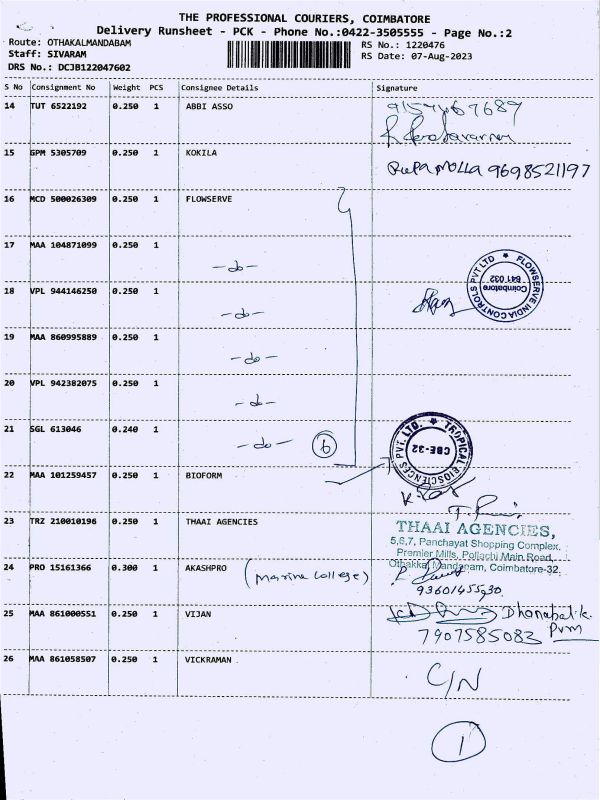 THE PROFESSIONAL COURIERS, COIMBATORE
Delivery Runsheet - PCK - Phone No.:0422-3505555 - Page No.:2
Route: OTHAKALMANDABAM
RS No.: 1220476
Staff: SIVARAM
RS Date: 07-Aug-2023
DRS No.: DCJB122047602
S No Consignment No Weight PCS Consignee Details Signature
14 TUT 6522192 0.250 1 ABBI ASSO
15 GPM 5305709 0.250 1 KOKILA
9698521197
16 MCD 500026309 0.250 1 FLOWSERVE
17 MAA 104871099 0.250 1
-do-
FLOWSERVE INDIA CONTROLS PVT LTD
Coimbatore
641 032
18 VPL 944146250 0.250 1
-do-
19 MAA 860995889 0.250 1
-do-
20 VPL 942382075 0.250 1
-do-
21 SGL 613046 0.240 1
-do- 6
TROPICAL BIOSCIENCES PVT. LTD.
CBE-32
22 MAA 101259457 0.250 1 BIOFORM
23 TRZ 210010196 0.250 1 THAAI AGENCIES
THAAI AGENCIES,
5,6,7, Panchayat Shopping Complex,
Premier Mills, Pollachi Main Road,
Othakkal Mandapam, Coimbatore-32.
24 PRO 15161366 0.300 1 AKASHPRO (Marine College)
9360145530
25 MAA 861000551 0.250 1 VIJAN
Dhanapal.k.
7907585083 Pvm
26 MAA 861058507 0.250 1 VICKRAMAN
C/N
1